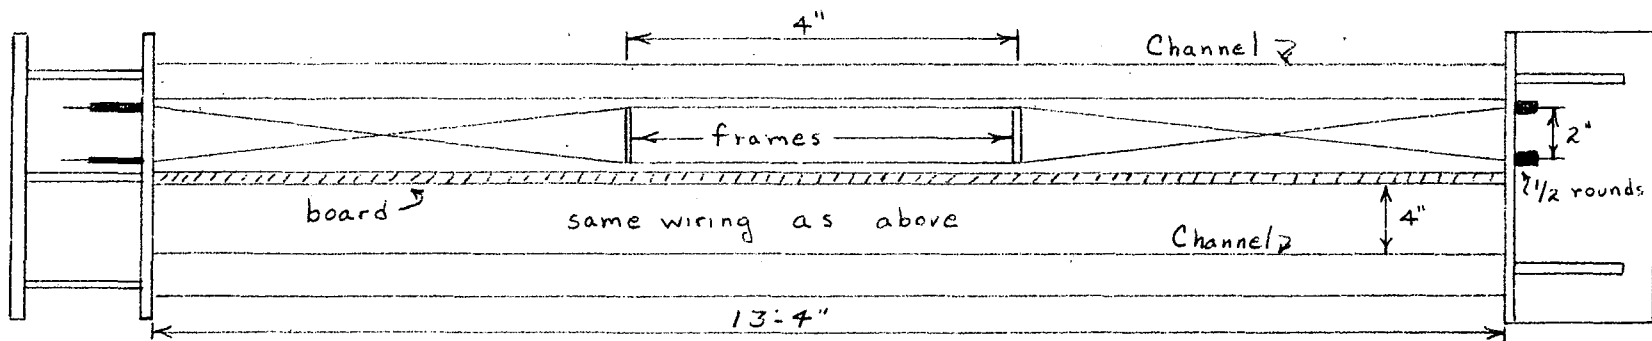 4"
Channel
frames
2"
1/2 rounds
board
same wiring as above
4"
Channel
13'-4"